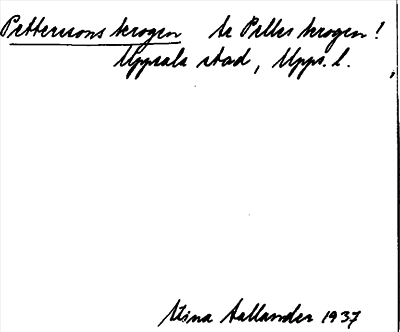 Petterssons krogen se Pelles krogen!
Uppsala stad, Upps. l.
Stina Hallander 1937